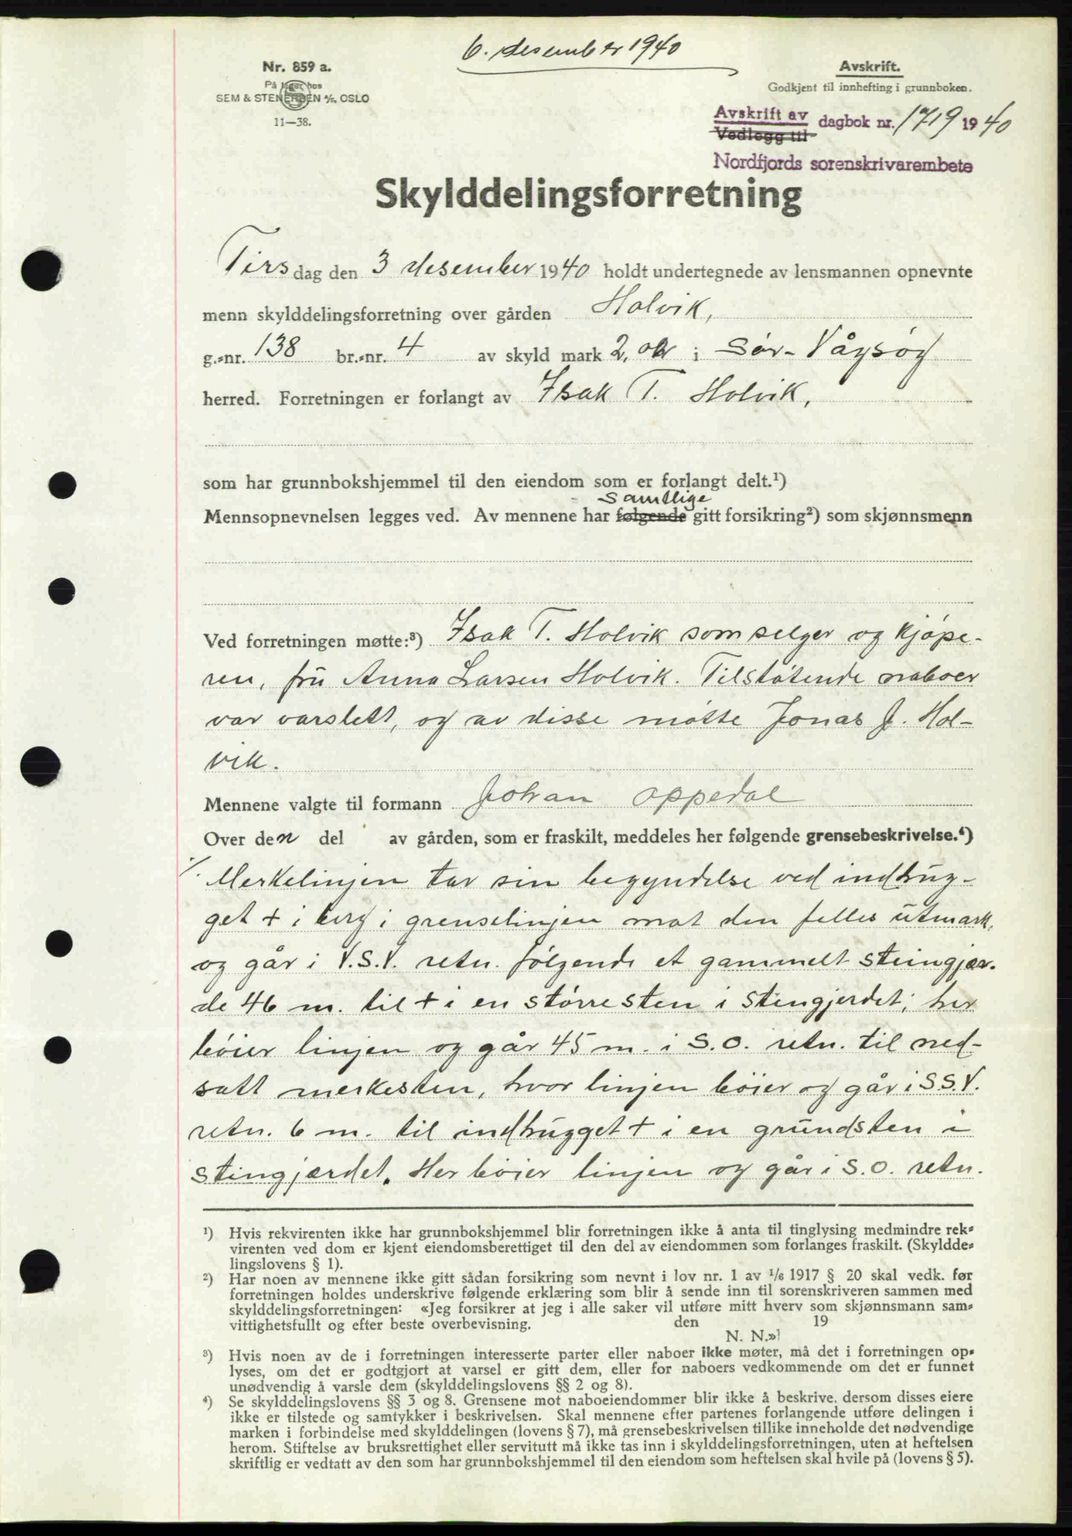 6. desember 1940
Nr. 859 a.
På lager hos
SEM & STENERSEN A/S. OSLO
11—38.
Avskrift.
Godkjent til innhefting i grunnboken.
Avskrift av
Vedlegg til
dagbok nr. 1719 1940
Nordfjords sorenskrivarembete
Skylddelingsforretning
Tirsdag den 3 desember 1940 holdt undertegnede av lensmannen opnevnte
menn skylddelingsforretning over gården Holvik,
g.-nr. 138 br.-nr. 4 av skyld mark 2, i Sør-Vågsøy
herred. Forretningen er forlangt av Isak T. Holvik,
som har grunnbokshjemmel til den eiendom som er forlangt delt.¹)
samtlige
Mennsopnevnelsen legges ved. Av mennene har følgende gitt forsikring²) som skjønnsmenn
Ved forretningen møtte:³) Isak T. Holvik som selger og kjøpe-
ren, fru Anna Larsen Holvik. Tilstøtende naboer
var varslett, og av disse møtte Jonas J. Hol-
vik.
Mennene valgte til formann Johan Oppedal
Over den del av gården, som er fraskilt, meddeles her følgende grensebeskrivelse.⁴)
1/. Merkelinjen tar sin begyndelse ved indhug-
get + i berg i grenselinjen mot den felles utmark,
og går i V.S.V. retn. følgende et gammelt steingjær-
de 46 m. til + i en større sten i stengjerdet; her
bøier linjen og går 45 m. i S.O. retn. til ned-
satt merkesten, hvor linjen bøier og går i S.S.V.
retn. 6 m. til indhugget + i en grundsten i
stengjærdet. Her bøier linjen og går i S.O. retn.
¹) Hvis rekvirenten ikke har grunnbokshjemmel blir forretningen ikke å anta til tinglysing medmindre rek-
virenten ved dom er kjent eiendomsberettiget til den del av eiendommen som forlanges fraskilt. (Skyldde-
lingslovens § 1).
²) Har noen av mennene ikke gitt sådan forsikring som nevnt i lov nr. 1 av 1/6 1917 § 20 skal vedk. før
forretningen holdes underskrive følgende erklæring som blir å sende inn til sorenskriveren sammen med
skylddelingsforretningen: «Jeg forsikrer at jeg i alle saker vil utføre mitt hverv som skjønnsmann sam-
vittighetsfullt og efter beste overbevisning. den 19
N. N.»
³) Hvis noen av de i forretningen interesserte parter eller naboer ikke møter, må det i forretningen op-
lyses, om det er godtgjort at varsel er gitt dem, eller for naboers vedkommende om det er funnet
unødvendig å varsle dem (skylddelingslovens §§ 2 og 8).
⁴) Se skylddelingslovens §§ 3 og 8. Grensene mot naboeiendommer blir ikke å beskrive, dersom disses eiere
ikke er tilstede og samtykker i beskrivelsen. Skal mennene efter partenes forlangende utføre delingen i
marken i forbindelse med skylddelingen (lovens § 7), må grensebeskrivelsen tillike inneholde det nødvendige
herom. Stiftelse av bruksrettighet eller servitutt må ikke tas inn i skylddelingsforretningen, uten at heftelsen
skriftlig er vedtatt av den som har grunnbokshjemmel til den eiendom som heftelsen skal hvile på (lovens § 5).